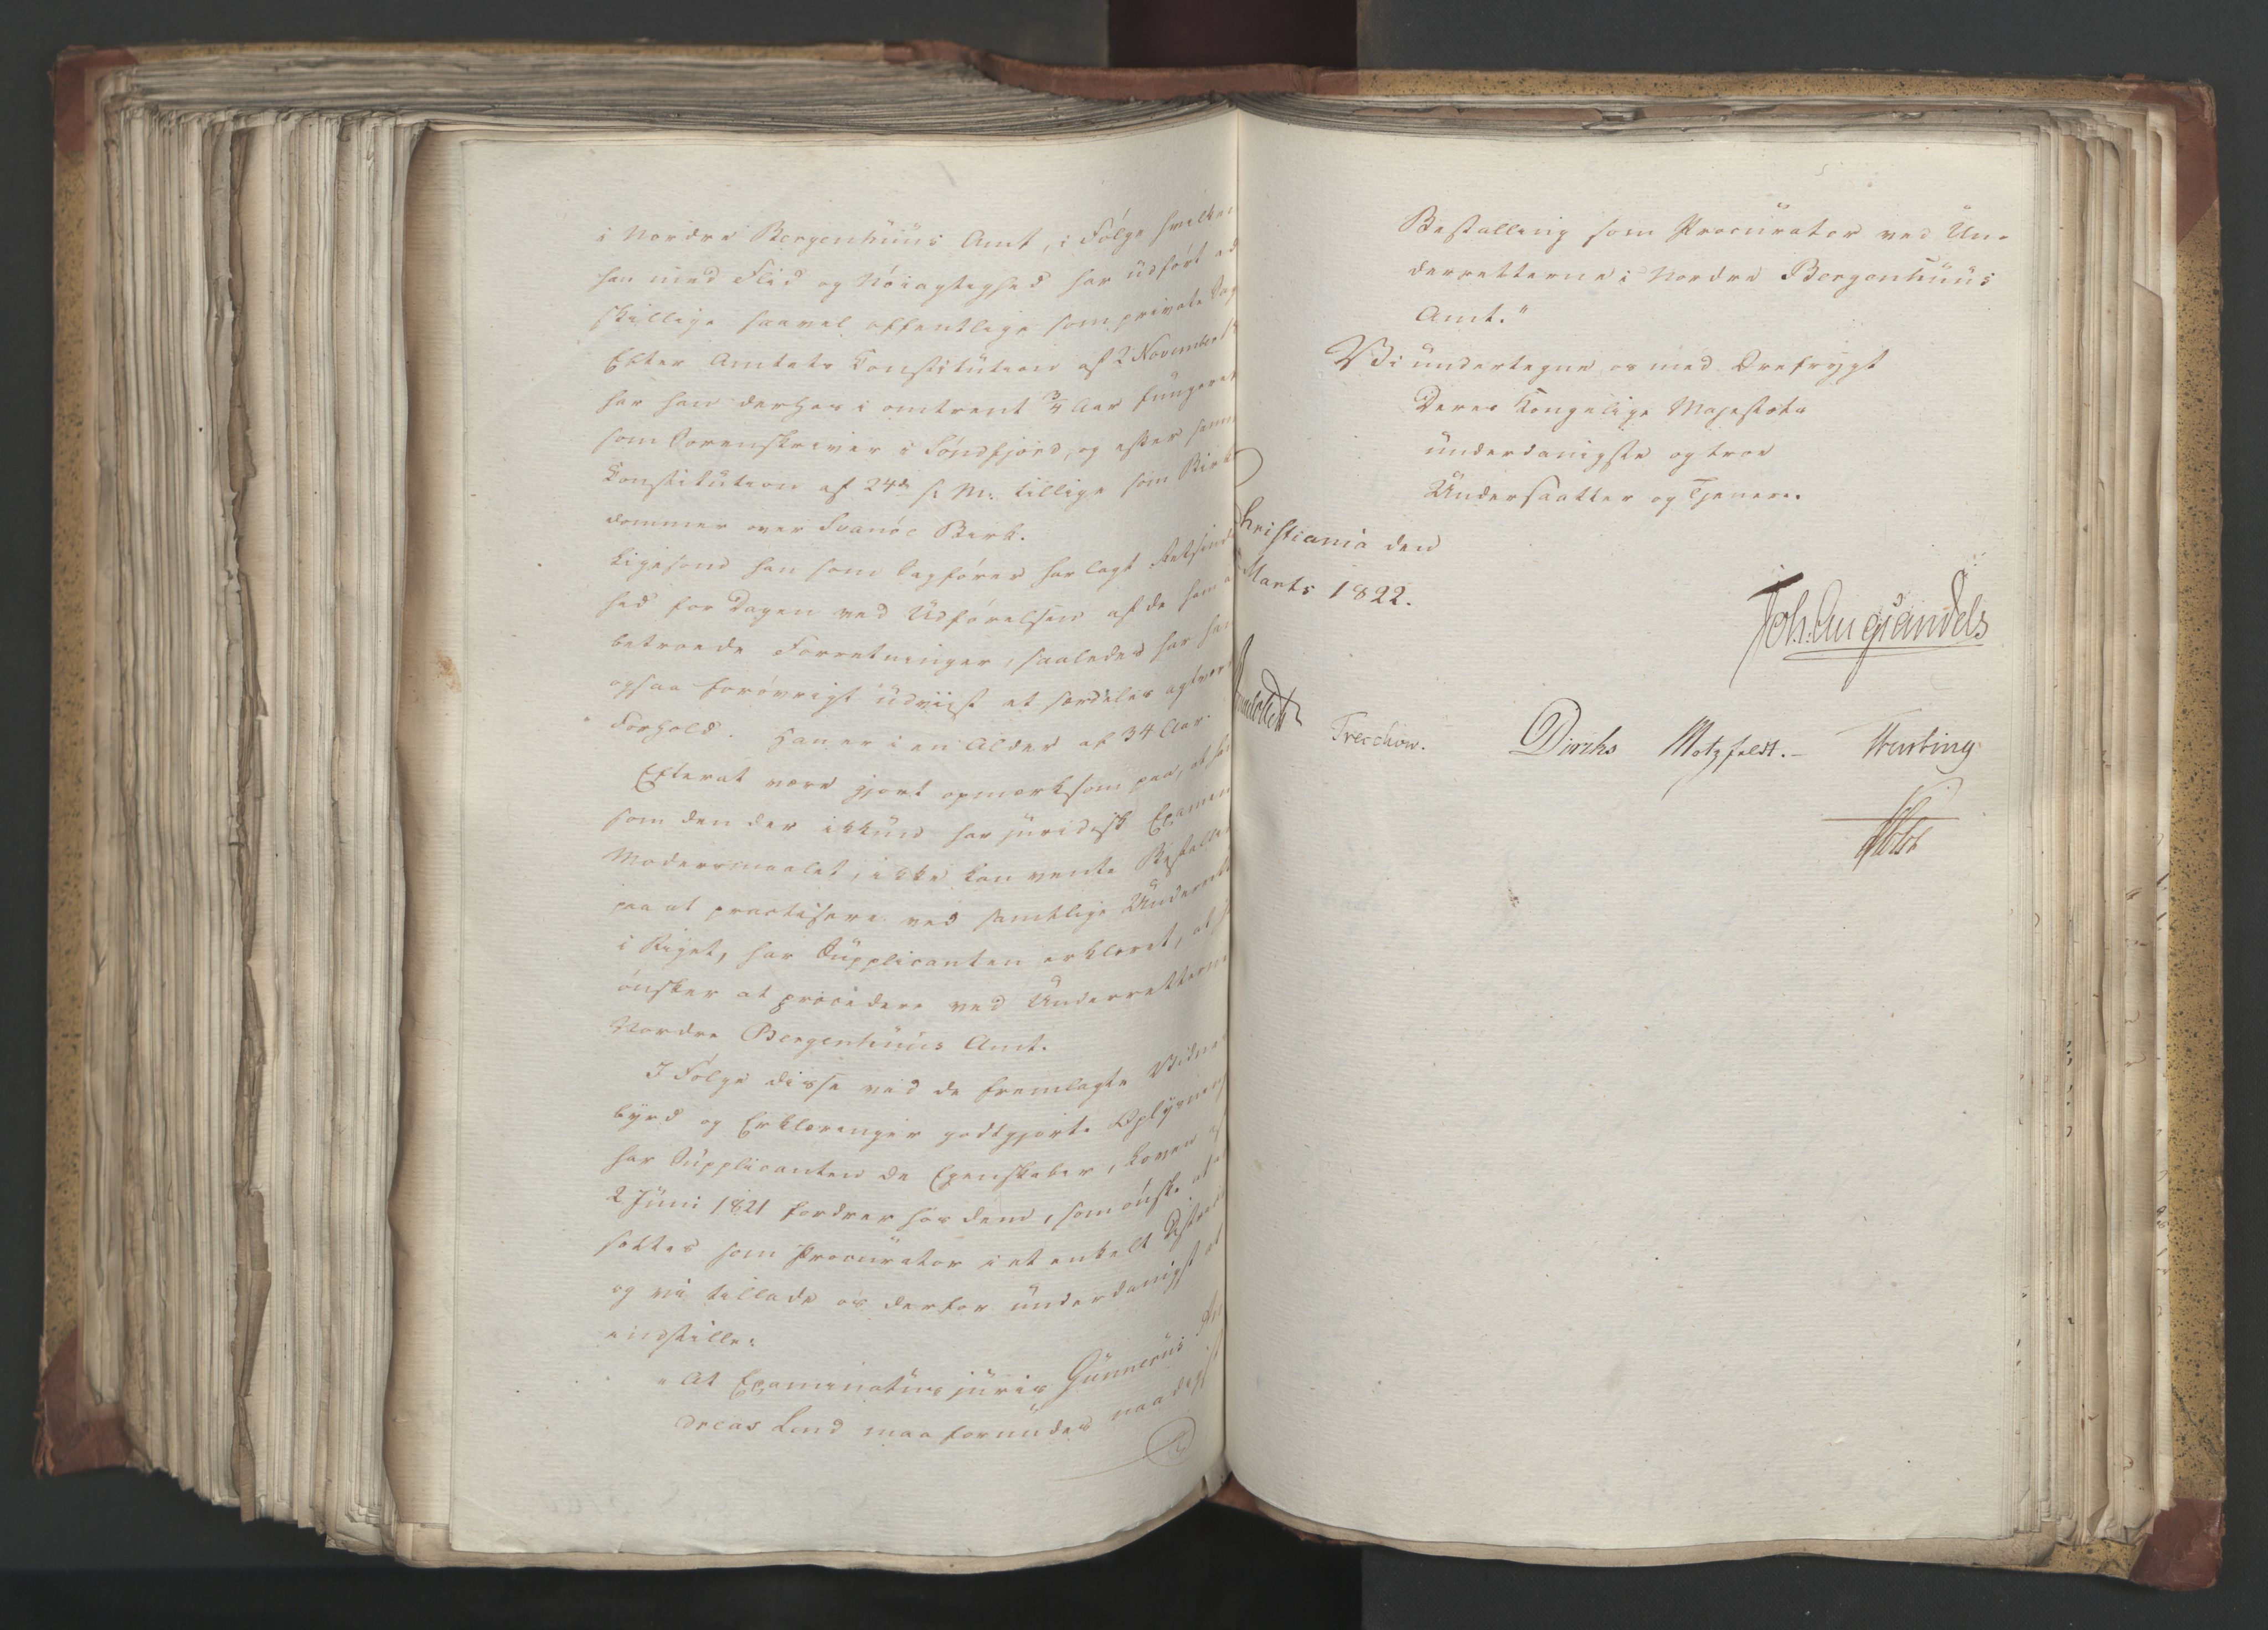 i Nordre Bergenhuus Amt, i Følge hvilken
han med Flid og Nøiagtighed har udført ad
skillige saavel offentlige som private Sag
Efter Amtets Constitution af 2 November
har han derhos i omtrent 3/4 Aar fungeret
som Sorenskriver i Søndfjord, og efter samme
Constitution af 24de s. M. tillige som Birk
dommer over Svanøe Birk.
Ligesom han som Sagfører har lagt Retsind
hed for Dagen ved Udførelsen af de ham
betroede Forretninger, saaledes har han
ogsaa forøvrigt udviist et særdeles agtvær
Forhold. Han er i en Alder af 34 Aar.
Efterat være gjort opmærksom paa, at
som den der ikkun har juridisk Examen
Modersmaalet, ikke kan vente Bestalling
paa at practisere ved samtlige Underrett
i Riget, har Supplicanten erklæret, at
ønsker at procedere ved Underretterne
Nordre Bergenhuus Amt.
I Følge disse ved de fremlagte Vidnes
byrd og Erklæringer godtgjorte Oplysning
har Supplicanten de Egenskaber, Loven af
2 Juni 1821 fordrer hos dem, som ønske at
sættes som Procurator i et enkelt District
og vi tillade os derfor underdanigst at
indstille:
"At Examinatus juris Gunnerus An
dreas Lind maa forundes naadigst
Bestalling som Procurator ved Un-
derretterne i Nordre Bergenhuus
Amt."
Vi undertegne os med Ærefrygt
Deres Kongelige Majestæts
underdanigste og troe
Undersaatter og Tjenere.
Christiania den
Marts 1822.
Joh. Aug Sandels
Treschow. Diriks Motzfeldt. Krebting
Holst